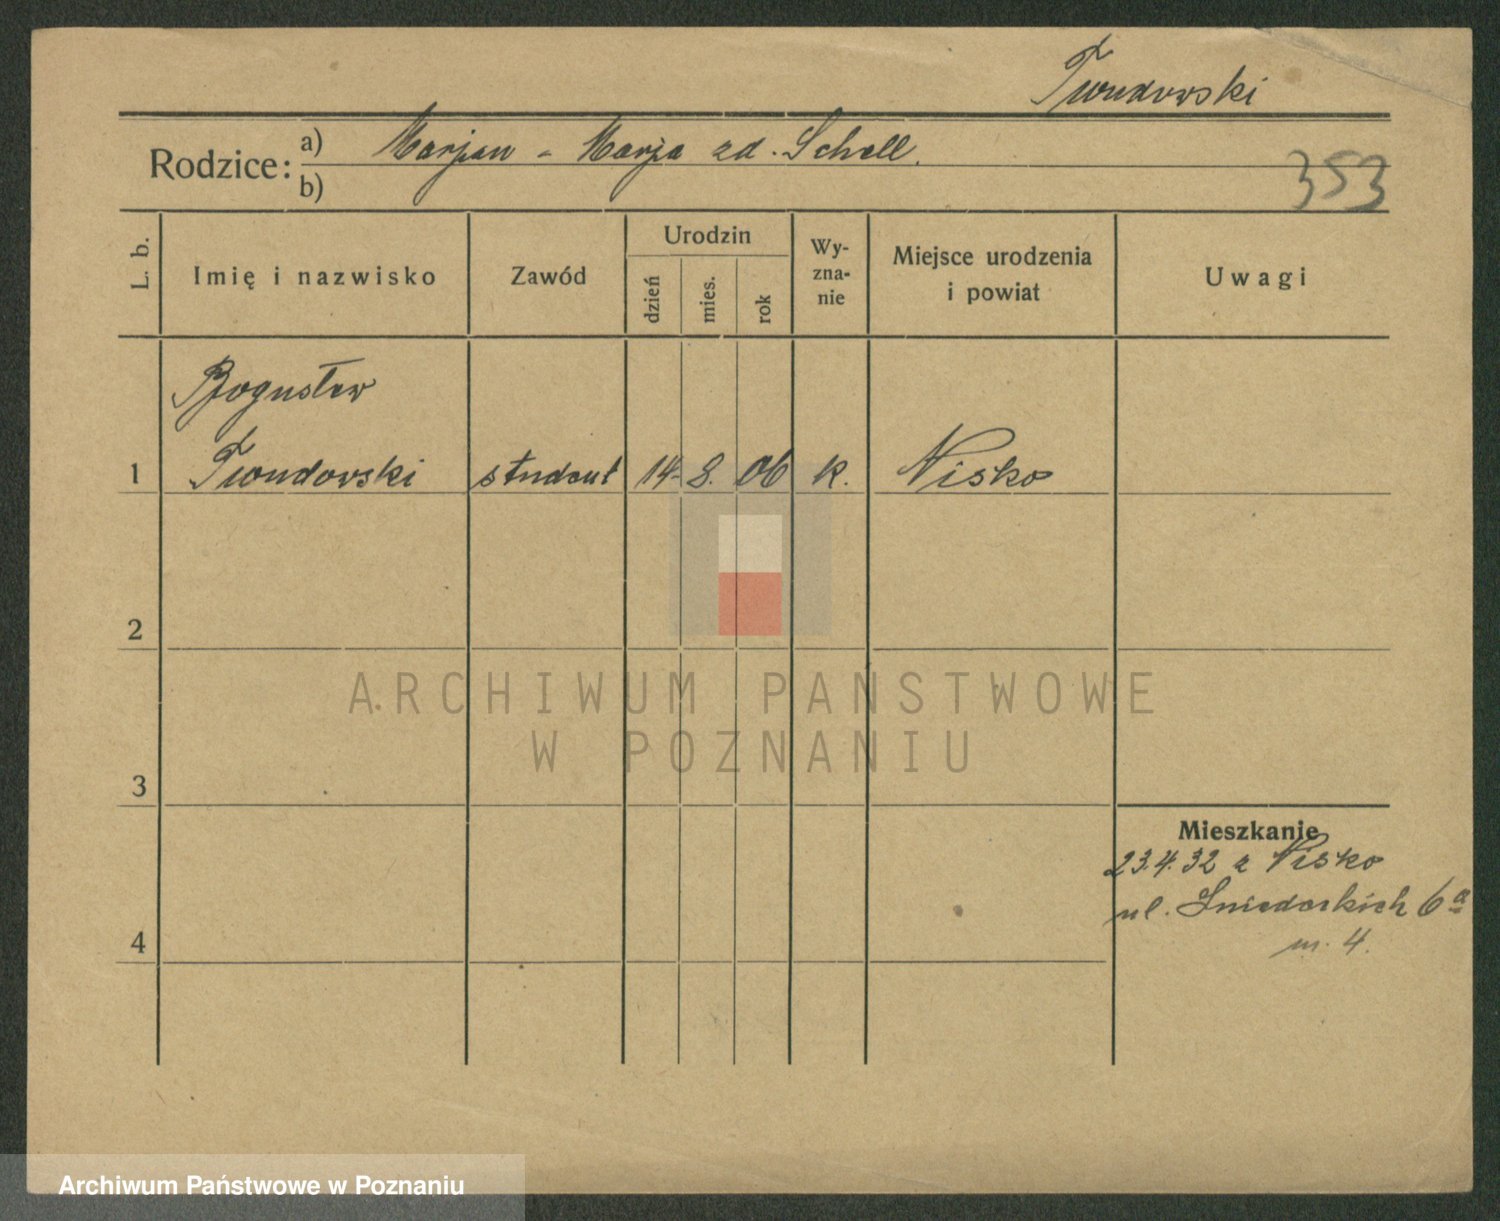 Twudowski
Rodzice: a) Marjan - Marja zd. Scholl.
b)
353
L. b.
Imię i nazwisko
Zawód
Urodzin
dzień
mies.
rok
Wy-
zna-
nie
Miejsce urodzenia
i powiat
Uwagi
Bogusław
1 Twudowski student 14. 8. 06 k. Nisko
2
3
4
Mieszkanie
23.4.32 z Nisko
ul. Śniadeckich 6a
m. 4.
ARCHIWUM PAŃSTWOWE
W POZNANIU
Archiwum Państwowe w Poznaniu